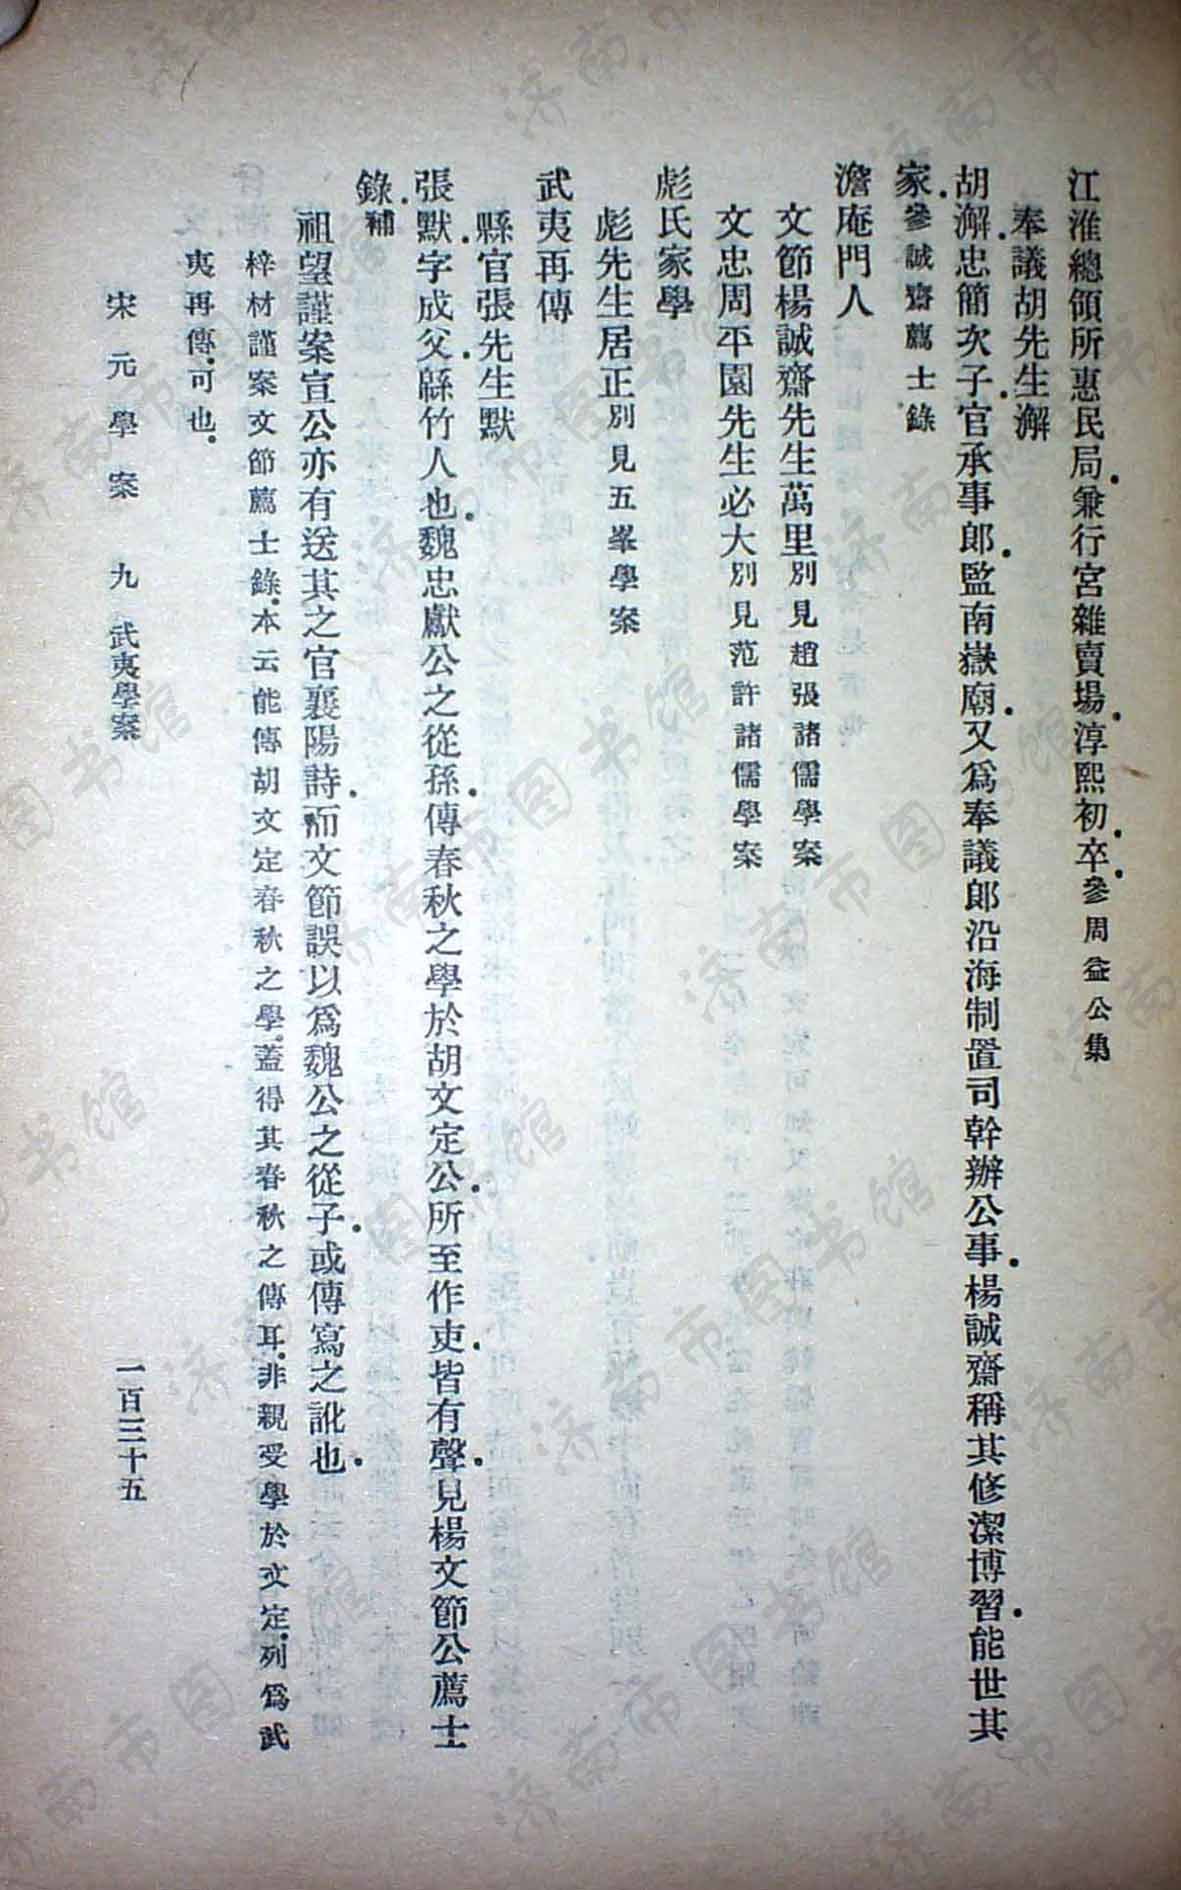 江淮總領所惠民局兼行宮雜賣場淳熙初卒參周益公集
奉議胡先生澥
胡澥忠簡次子官承事郎監南嶽廟又爲奉議郎沿海制置司幹辦公事楊誠齋稱其修潔博習能世其
家參誠齋薦士錄
澹庵門人
文節楊誠齋先生萬里別見趙張諸儒學案
文忠周平園先生必大別見范許諸儒學案
彪氏家學
彪先生居正別見五峯學案
武夷再傳
縣官張先生默
張默字成父緜竹人也魏忠獻公之從孫傳春秋之學於胡文定公所至作吏皆有聲見楊文節公薦士
錄補
祖望謹案宣公亦有送其之官襄陽詩而文節誤以爲魏公之從子或傳寫之訛也
梓材謹案文節薦士錄本云能傳胡文定春秋之學蓋得其春秋之傳耳非親受學於文定列爲武
夷再傳可也
宋元學案 九 武夷學案 一百三十五
济南市图书馆